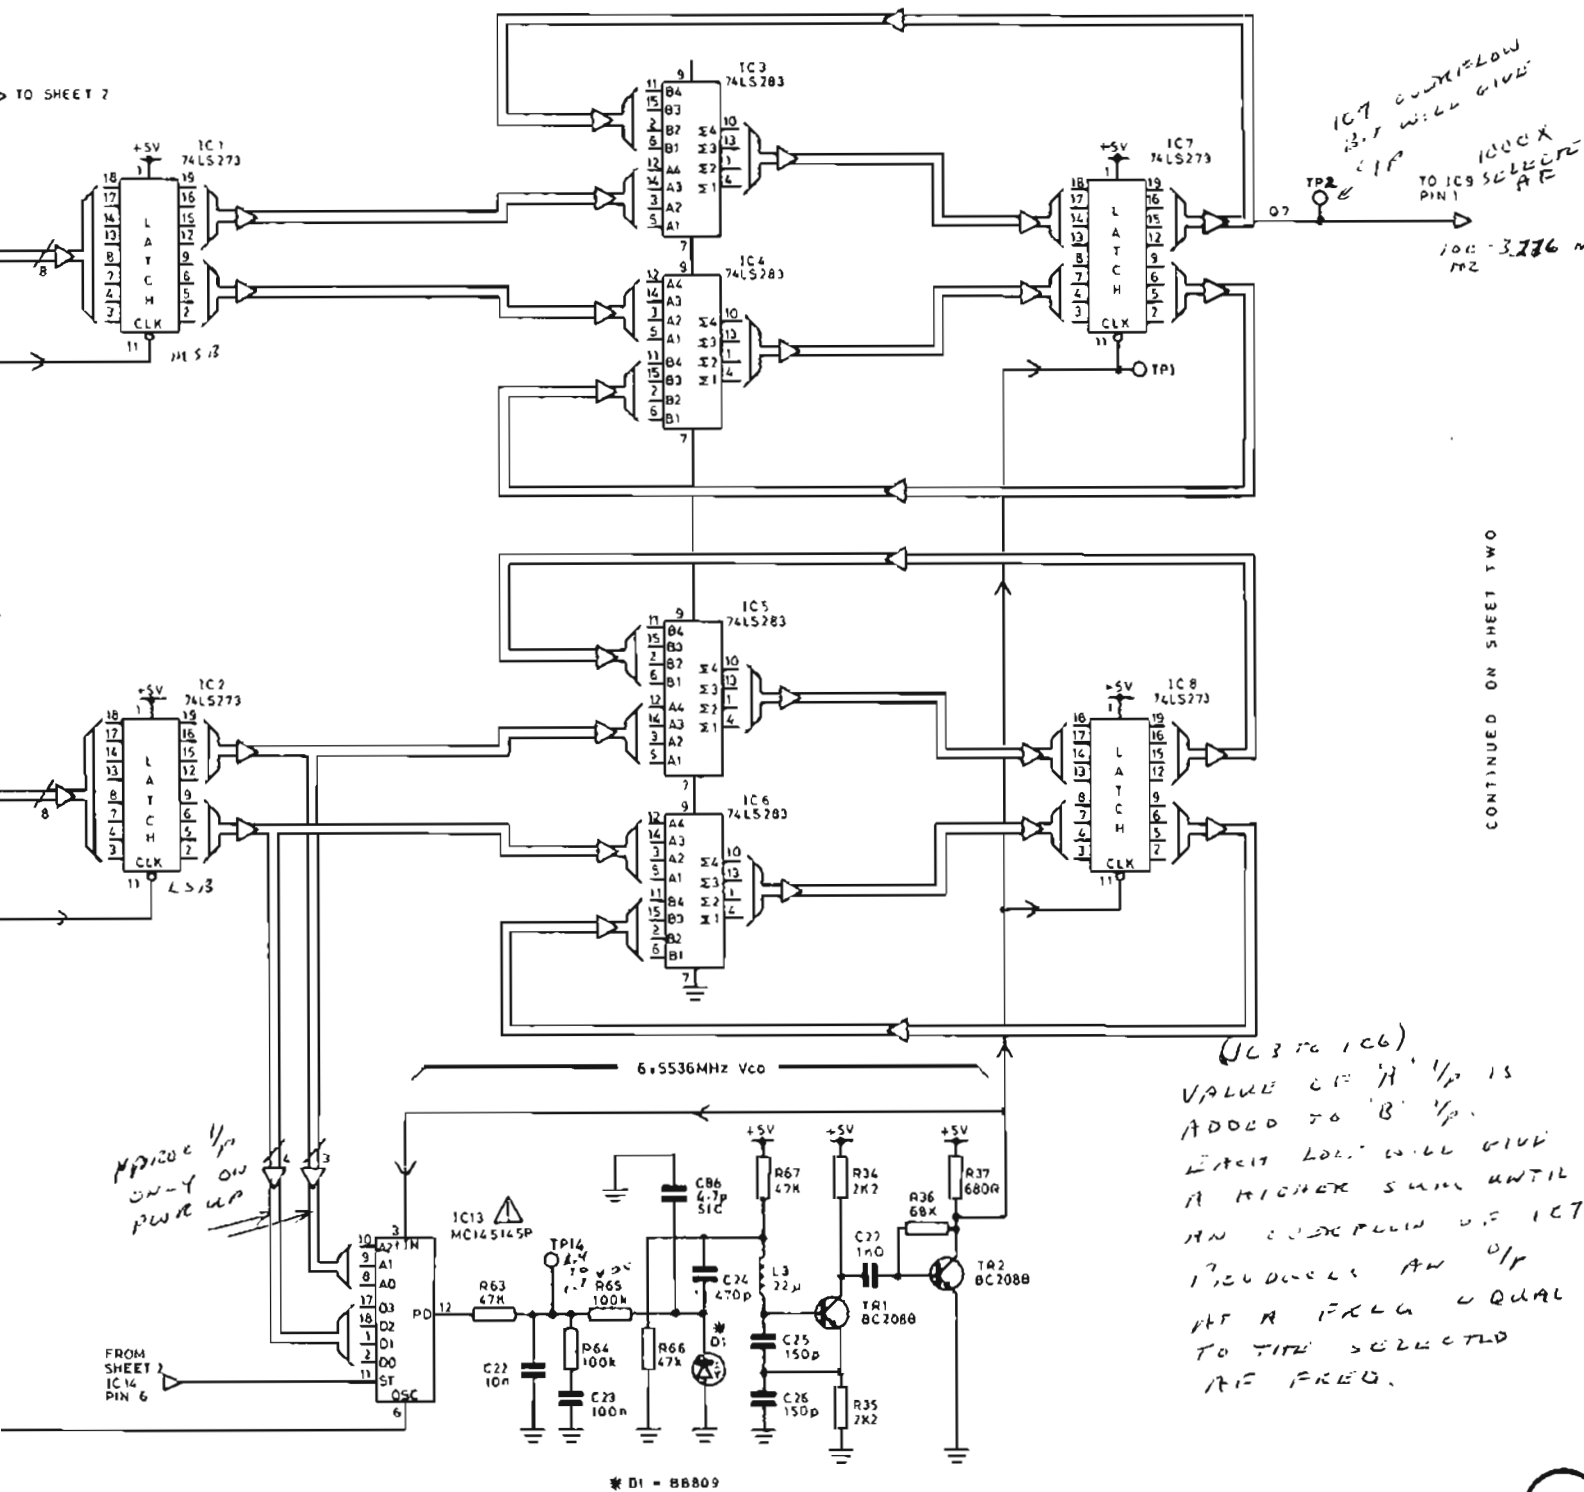 TO SHEET 2
+5V
IC1
74LS273
1
18 19
17 16
14 15
13 12
8 9
7 6
4 5
3 2
LATCH
CLK
11
MSB
8
IC3
74LS283
9
11 B4
15 B3
2 B2
6 B1
12 A4
14 A3
3 A2
5 A1
Σ4 10
Σ3 13
Σ2 1
Σ1 4
7
IC4
74LS283
9
12 A4
14 A3
3 A2
5 A1
11 B4
15 B3
2 B2
6 B1
Σ4 10
Σ3 13
Σ2 1
Σ1 4
7
+5V
IC7
74LS273
1
18 19
17 16
14 15
13 12
8 9
7 6
4 5
3 2
LATCH
CLK
11
TP1
Q7
TP2
TO IC9
PIN 1
IC7 OVERFLOW
BIT WILL GIVE
O/P
1000X
SELECTED
AF
CONTINUED ON SHEET TWO
+5V
IC2
74LS273
1
18 19
17 16
14 15
13 12
8 9
7 6
4 5
3 2
LATCH
CLK
11
LSB
8
IC5
74LS283
9
11 B4
15 B3
2 B2
6 B1
12 A4
14 A3
3 A2
5 A1
Σ4 10
Σ3 13
Σ2 1
Σ1 4
7
IC6
74LS283
9
12 A4
14 A3
3 A2
5 A1
11 B4
15 B3
2 B2
6 B1
Σ4 10
Σ3 13
Σ2 1
Σ1 4
7
+5V
IC8
74LS273
1
18 19
17 16
14 15
13 12
8 9
7 6
4 5
3 2
LATCH
CLK
11
6.5536MHz Vco
(IC3 TO IC6)
VALUE OF 'A' I/P IS
ADDED TO 'B' I/P.
EACH WILL GIVE
A HIGHER SUM UNTIL
AN OVERFLOW OF IC7
PRODUCES AN O/P
AT A FREQ EQUAL
TO THE SELECTED
AF FREQ.
I/P
ONLY ON
PWR UP
4
3
IC13
MC145145P
3
IN
10 A2
9 A1
8 A0
17 D3
18 D2
1 D1
2 D0
11 ST
PD 12
OSC
6
FROM
SHEET 2
IC14
PIN 6
R63
47K
TP14
R65
100k
R64
100k
C22
10n
C23
100n
R66
47k
C86
4.7p
SIC
C24
470p
*
D1
+5V
R67
47K
L3
22µ
C25
150p
C26
150p
+5V
R34
2K2
TR1
BC208B
R35
2K2
C27
1n0
R36
68K
+5V
R37
680R
TR2
BC208B
* D1 = BB809